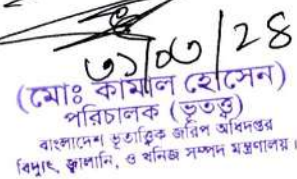 ৩১/০৩/২৪
(মোঃ কামাল হোসেন)
পরিচালক (ভূতত্ত্ব)
বাংলাদেশ ভূতাত্ত্বিক জরিপ অধিদপ্তর
বিদ্যুৎ, জ্বালানি, ও খনিজ সম্পদ মন্ত্রণালয়।